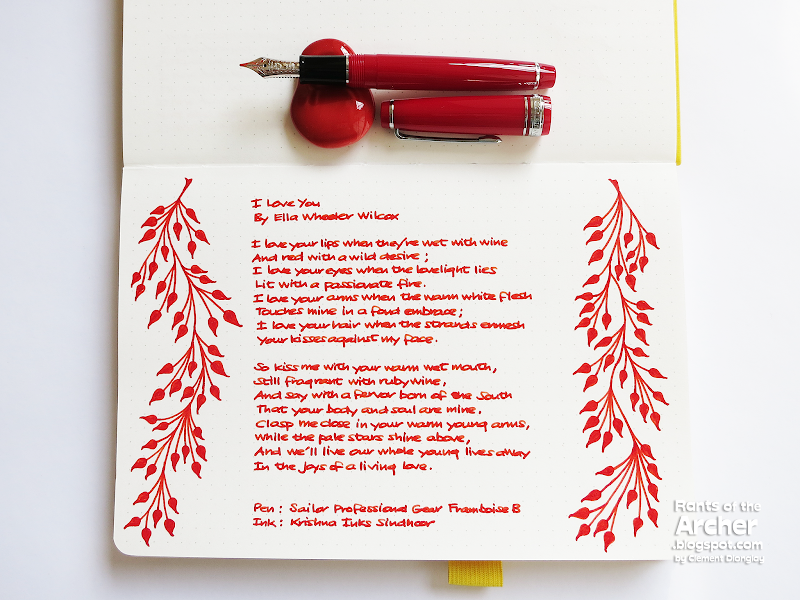 I Love You
By Ella Wheeler Wilcox
I love your lips when they're wet with wine
And red with a wild desire;
I love your eyes when the lovelight lies
Lit with a passionate fire.
I love your arms when the warm white flesh
Touches mine in a fond embrace;
I love your hair when the strands enmesh
Your kisses against my face.
So kiss me with your warm wet mouth,
Still fragrant with ruby wine,
And say with a fervor born of the South
That your body and soul are mine.
Clasp me close in your warm young arms,
While the pale stars shine above,
And we'll live our whole young lives away
In the joys of a living love.
Pen: Sailor Professional Gear Framboise B
Ink: Krishna Inks Sindhoor
Rants of the
Archer
.blogspot.com
by Clement Dionglay